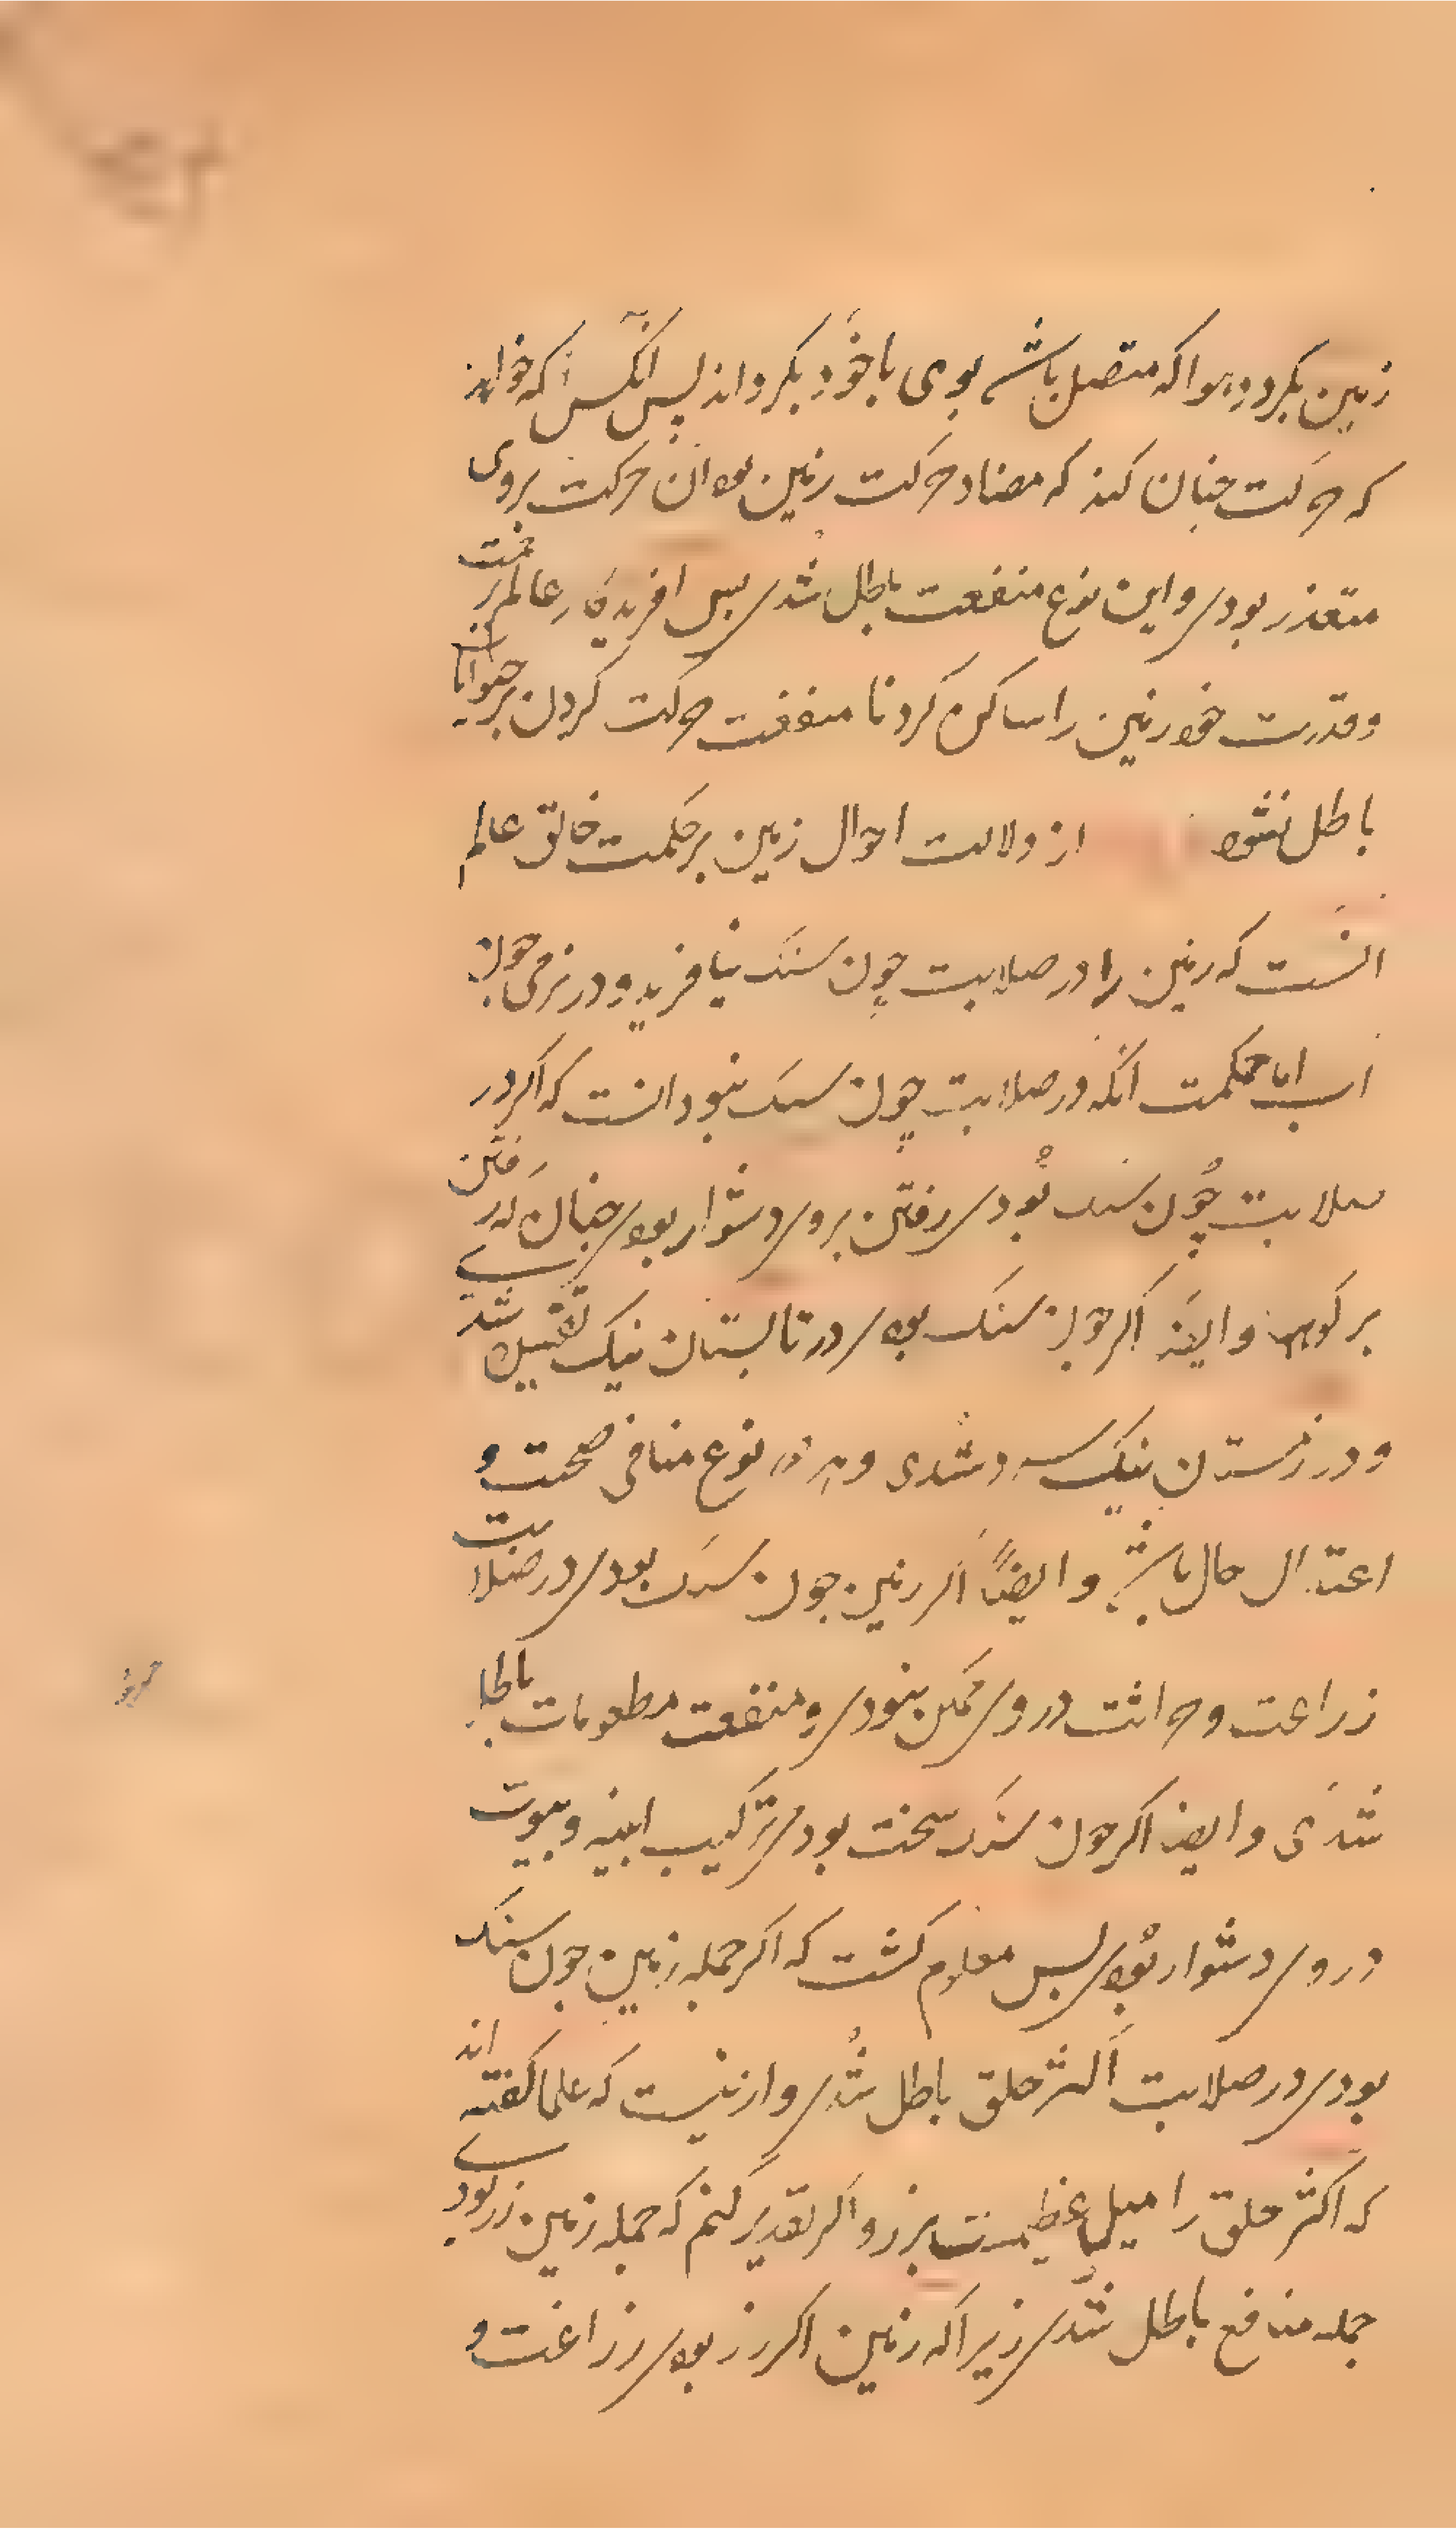 زمین بکردد هوا که متصل باشد بوی با خود بکرداند پس انکس که خواهد
که حرکت چنان کند که مضاد حرکت زمین بود ان حرکت بروی
متعذر بودی و این نوع منفعت باطل شدی پس افریدکار عالم برحمت
و قدرت خود زمین را ساکن کرد تا منفعت حرکت کردن بر حیوانات
باطل نشود از دلالت احوال زمین بر حکمت خالق عالم
انست که زمین را در صلابت چون سنک نیافرید و در نرمی چون
اب اما حکمت انکه در صلابت چون سنک نبود انست که اکر در
صلابت چون سنک بودی رفتن بروی دشوار بودی چنان که رفتن
بر کوهها و ایضا اکر چون سنک بودی در تابستان نیک تفسیده شدی
و در زمستان نیک سرد شدی و هر دو نوع منافی صحت و
اعتدال حال باشد و ایضاً اکر زمین چون سنک بودی در صلابت
زراعت و حراثت دروی ممکن نبودی و منفعت مطعومات باطل
شدی و ایضا اکر چون سنک سخت بودی ترکیب ابنیه و بیوت
دروی دشوار بودی پس معلوم کشت که اکر جمله زمین چون سنک
بودی در صلابت اکثر خلق باطل شدی و ازینست که علما کفته اند
که اکثر خلق را میل عظیمست بزر و اکر تقدیر کنم که جمله زمین زر بودی
جمله منافع باطل شدی زیرا که زمین اکر زر بودی زراعت و